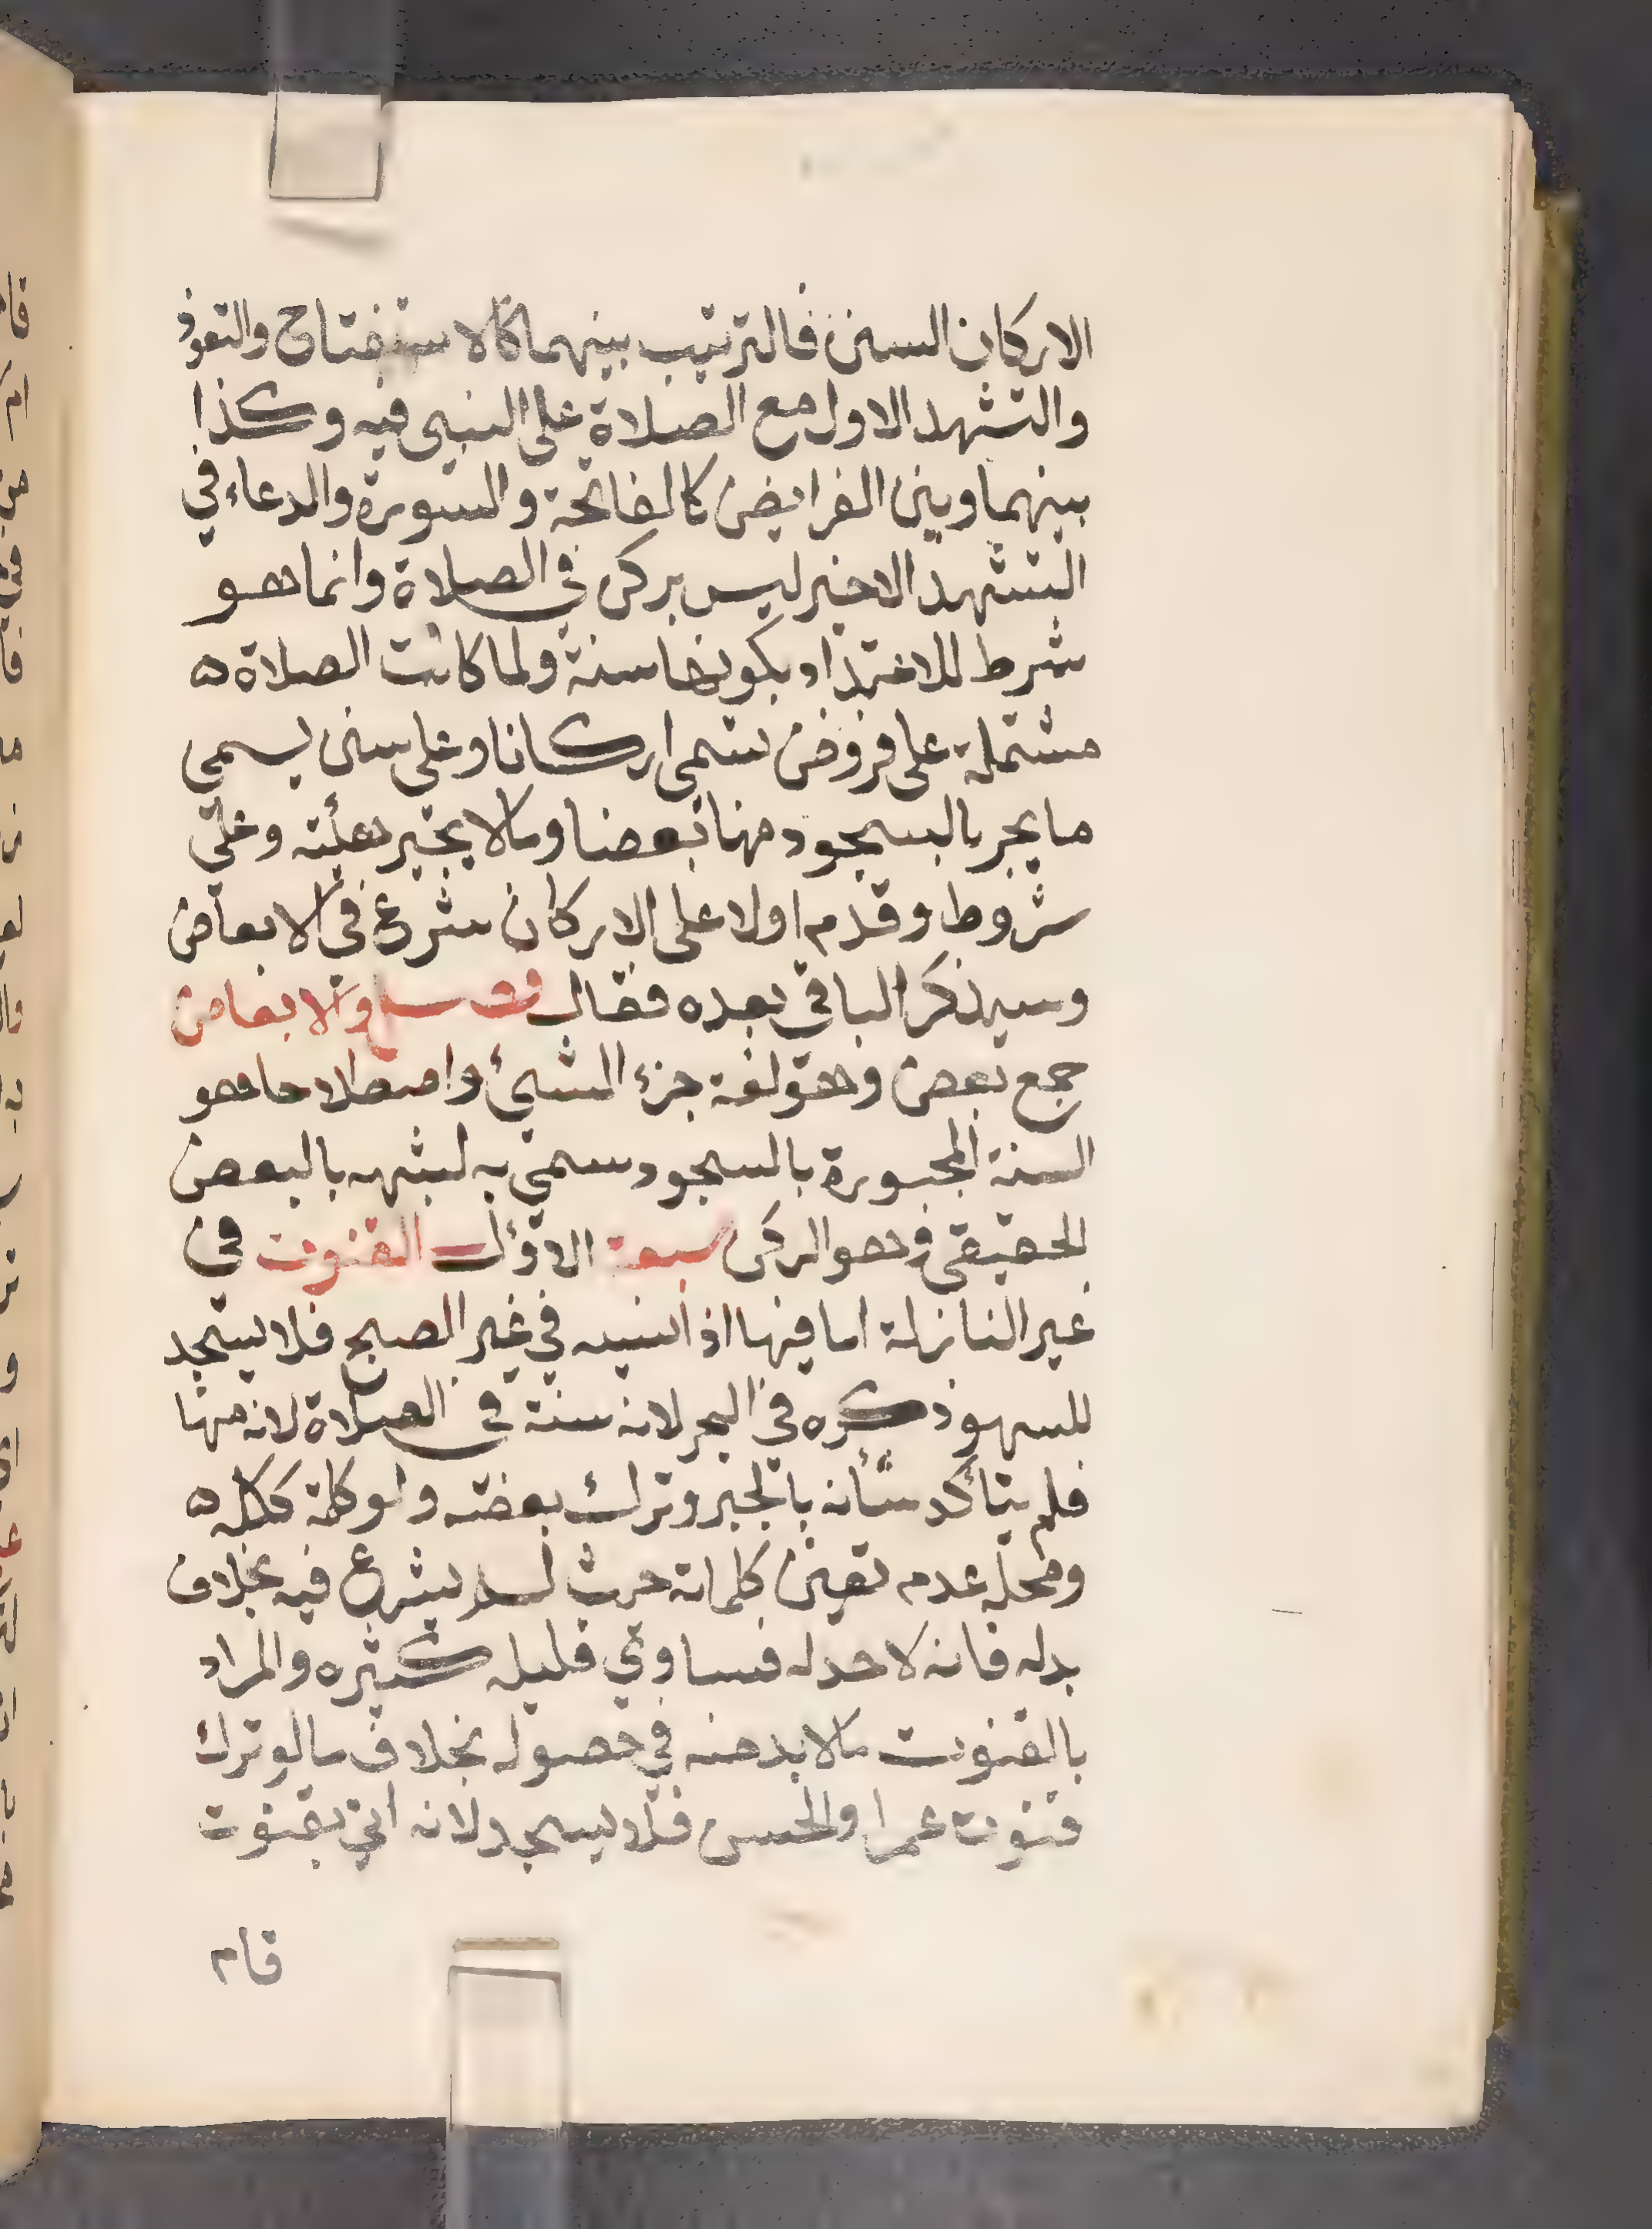 الاركان السنن فالترتيب بينهما كالاستفتاح والتعوذ
والتشهد الاول مع الصلاة على النبي فيه وكذا
بينهما وبين الفرايض كالفاتحة والسورة والدعاء في
التشهد الاخير ليس بركن في الصلاة وانما هو
شرط للاعتداد بكونها سنة ولما كانت الصلاة ه
مشتملة على فروض تسمى اركانا وعلى سنن يسمى
ما يجبر بالسجود منها بعضا وما لا يجبر هيئة وعلى
شروط وقدم اولا على الاركان شرع في الابعاض
وسيذكر الباقي بعده فقال فصل والابعاض
جمع بعض وهو لغة جزء الشيئ واصطلاحا هو
السنة المجبورة بالسجود سمي به لشبهه بالبعض
الحقيقي وهو الركن سبعة الاول القنوت في
غير النازلة اما فيها اذا نسيه في غير الصبح فلا يسجد
للسهو ذكره في البحر لانه سنة في الصلاة لانه منها
فلم يتأكد شأنه بالجبر وترك بعضه ولو كلمة ككله ه
ومحله عدم تعين كلماته حيث لم يشرع فيه بخلاف
بدله فانه لا حد له فساوي قليله كثيره والمراد
بالقنوت ما لا بد منه في حصوله بخلاف ما لو ترك
قنوت عمرا والحسن فلا يسجد لانه اتي بقنوت
قام